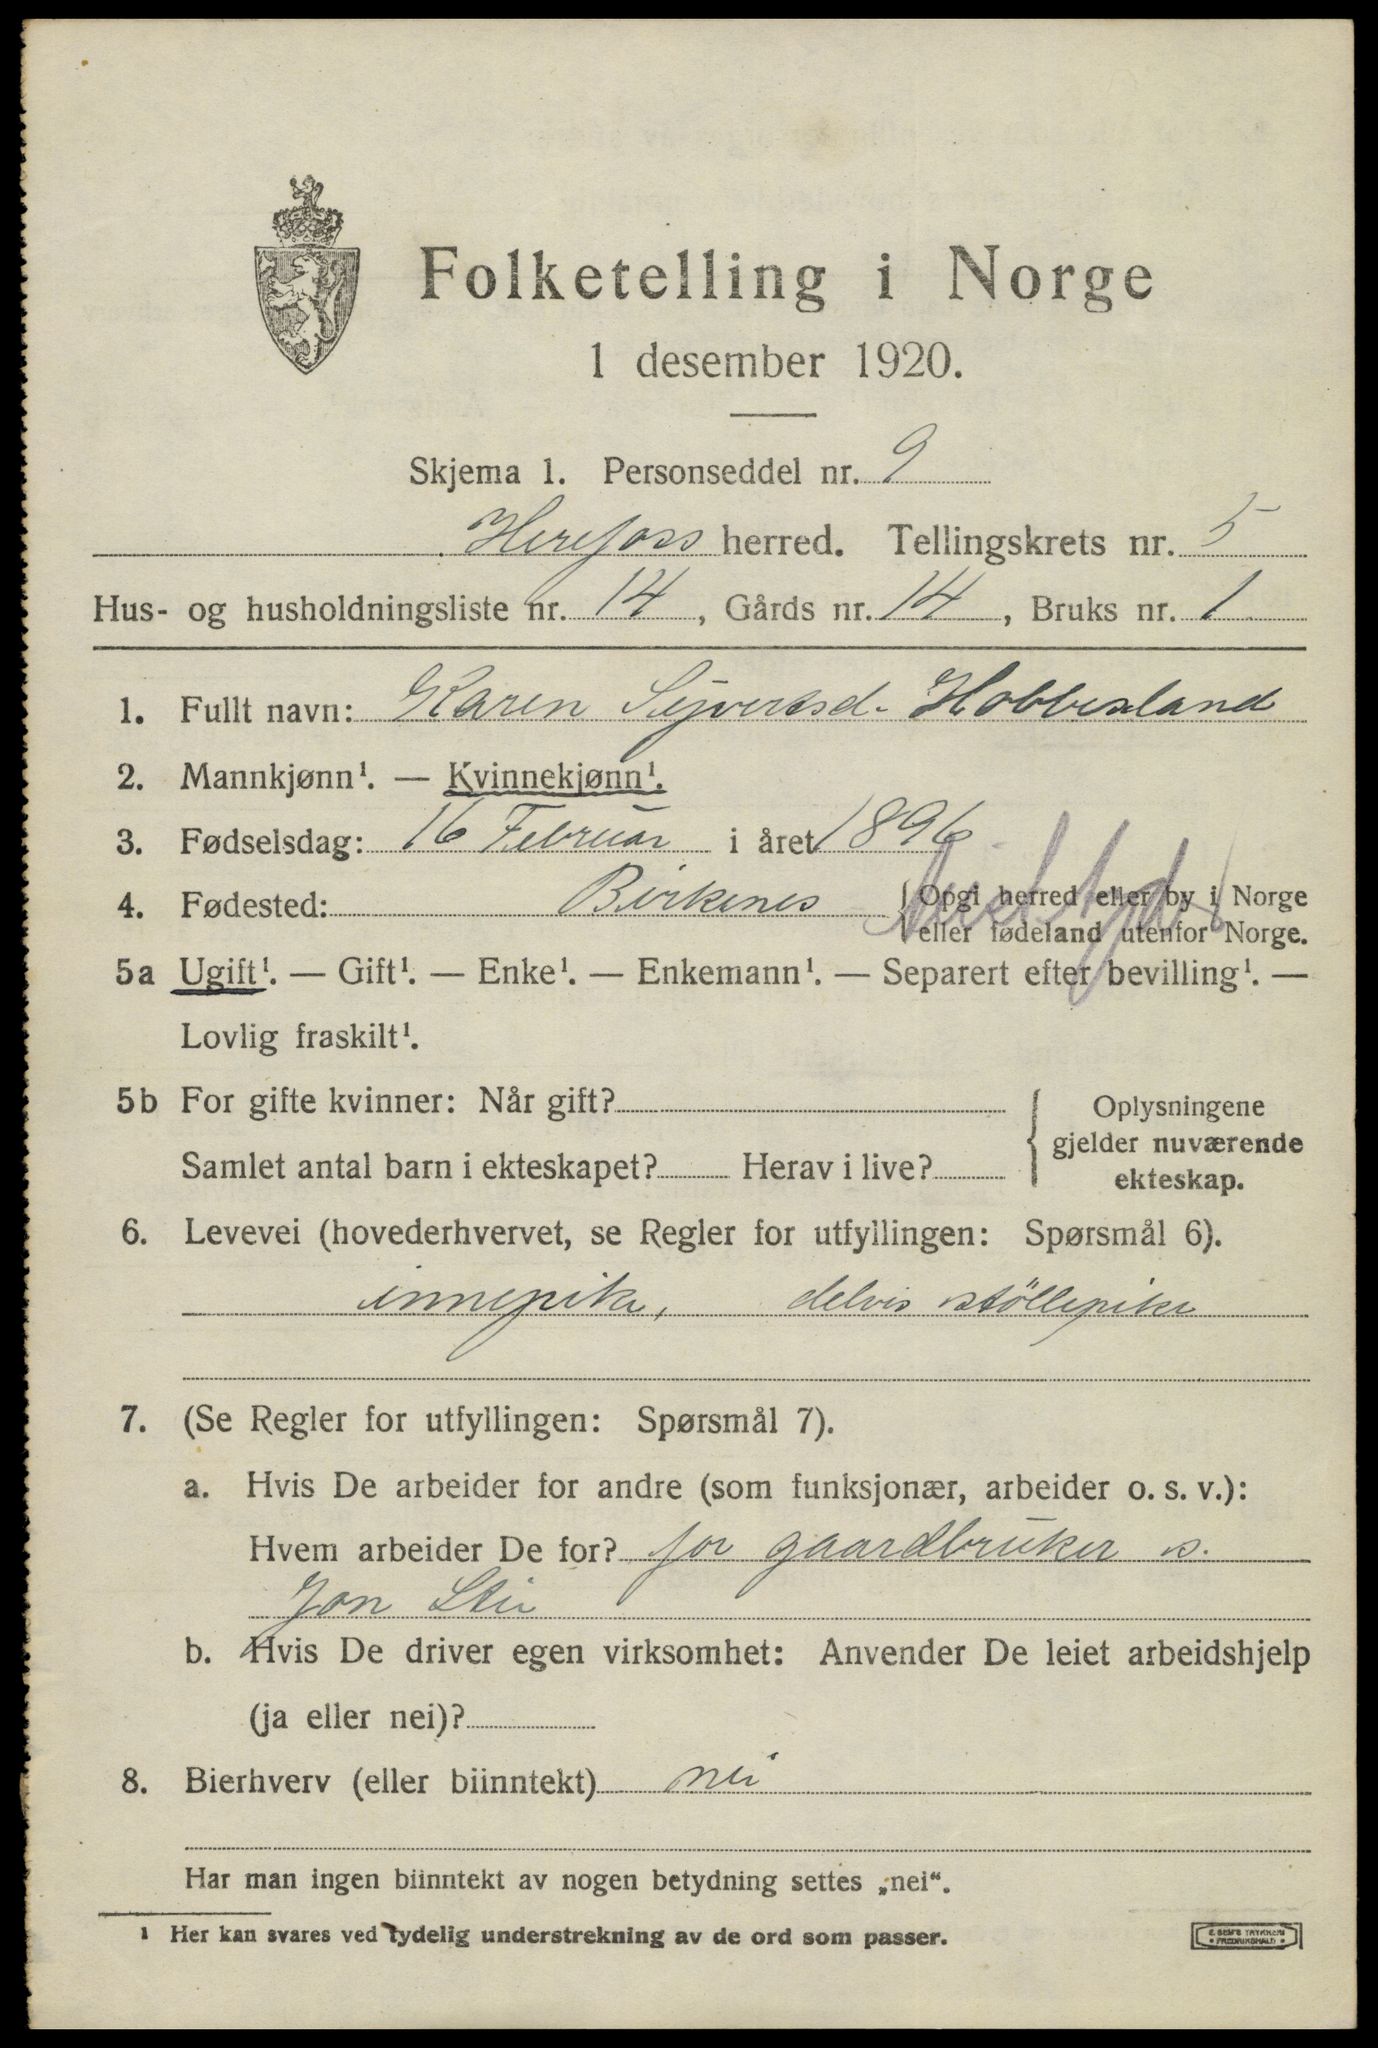 Folketelling i Norge
1 desember 1920.
Skjema 1. Personseddel nr. 9
Herefoss herred. Tellingskrets nr. 5
Hus- og husholdningsliste nr. 14, Gårds nr. 14, Bruks nr. 1
1. Fullt navn: Karen Sejvertsd. Hobbesland
2. Mannkjønn¹. — Kvinnekjønn¹.
3. Fødselsdag: 16 Februar i året 1896
4. Fødested: Birkenes { Opgi herred eller by i Norge
eller fødeland utenfor Norge.
5a Ugift¹. — Gift¹. — Enke¹. — Enkemann¹. — Separert efter bevilling¹. —
Lovlig fraskilt¹.
5b For gifte kvinner: Når gift? { Oplysningene
gjelder nuværende
Samlet antal barn i ekteskapet? Herav i live?
ekteskap.
6. Levevei (hovederhvervet, se Regler for utfyllingen: Spørsmål 6).
innepike, delvis støllepike
7. (Se Regler for utfyllingen: Spørsmål 7).
a. Hvis De arbeider for andre (som funksjonær, arbeider o. s. v.):
Hvem arbeider De for? for gaardbruker s.
Jon
b. Hvis De driver egen virksomhet: Anvender De leiet arbeidshjelp
(ja eller nei)?
8. Bierhverv (eller biinntekt) nei
Har man ingen biinntekt av nogen betydning settes „nei“.
¹ Her kan svares ved tydelig understrekning av de ord som passer.
E. SEM'S TRYKKERI
• FREDRIKSHALD •